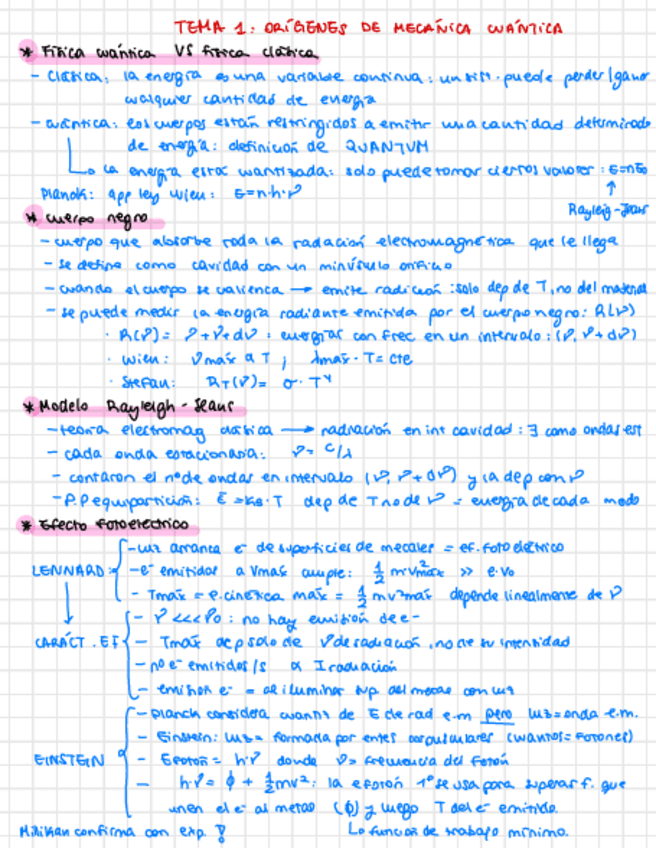 TEMA 1: ORÍGENES DE MECÁNICA CUÁNTICA
* Física cuántica VS física clásica
- Clásica: la energía es una variable continua: un sist. puede perder/ganar
cualquier cantidad de energía
- cuántica: los cuerpos están restringidos a emitir una cantidad determinada
de energía: definición de QUANTUM
↳ la energía está cuantizada: solo puede tomar ciertos valores: E=nE₀
Planck: app ley Wien: E=n·h·ν
↑
Rayleig-Jeans
* cuerpo negro
- cuerpo que absorbe toda la radiación electromagnética que le llega
- se define como cavidad con un minúsculo orificio
- cuando el cuerpo se calienta → emite radiación: solo dep de T, no del material
- se puede medir la energía radiante emitida por el cuerpo negro: R(ν)
· R(ν) = ν+ν+dν: energías con frec en un intervalo: (ν, ν+dν)
· Wien: νmáx α T; λmax·T = cte
· Stefan: R_T(ν) = σ·T⁴
* Modelo Rayleigh-Jeans
- teoría electromag clásica → radiación en int cavidad: ∃ como ondas est
- cada onda estacionaria: ν = c/λ
- contaron el nº de ondas en intervalo (ν, ν+dν) y la dep con ν
- P.P equipartición: Ē = k_B·T dep de T no de ν = energía de cada modo
* Efecto fotoeléctrico
- luz arranca e⁻ de superficies de metales = ef. fotoeléctrico
LENNARD: - e⁻ emitidos a Vmáx cumple: ½ m·v²máx >> e·V₀
- Tmáx = e. cinética máx = ½ mv²máx depende linealmente de ν
↓ - ν <<< ν₀: no hay emisión de e-
CARÁCT. EF - Tmáx dep solo de ν de radiación, no de su intensidad
- nº e⁻ emitidos/s α I radiación
- emisión e⁻ = al iluminar sup. del metal con luz
- Planck considera cuant. de E de rad e.m pero luz=onda e.m.
- Einstein: luz = formada por entes corpusculares (cuantos=fotones)
EINSTEIN - Efotón = h·ν donde ν = frecuencia del fotón
- h·ν = ϕ + ½mv²: la efotón 1º se usa para superar f. que
unen el e⁻ al metal (ϕ) y luego T del e⁻ emitido.
Millikan confirma con exp. ↳ función de trabajo mínimo.